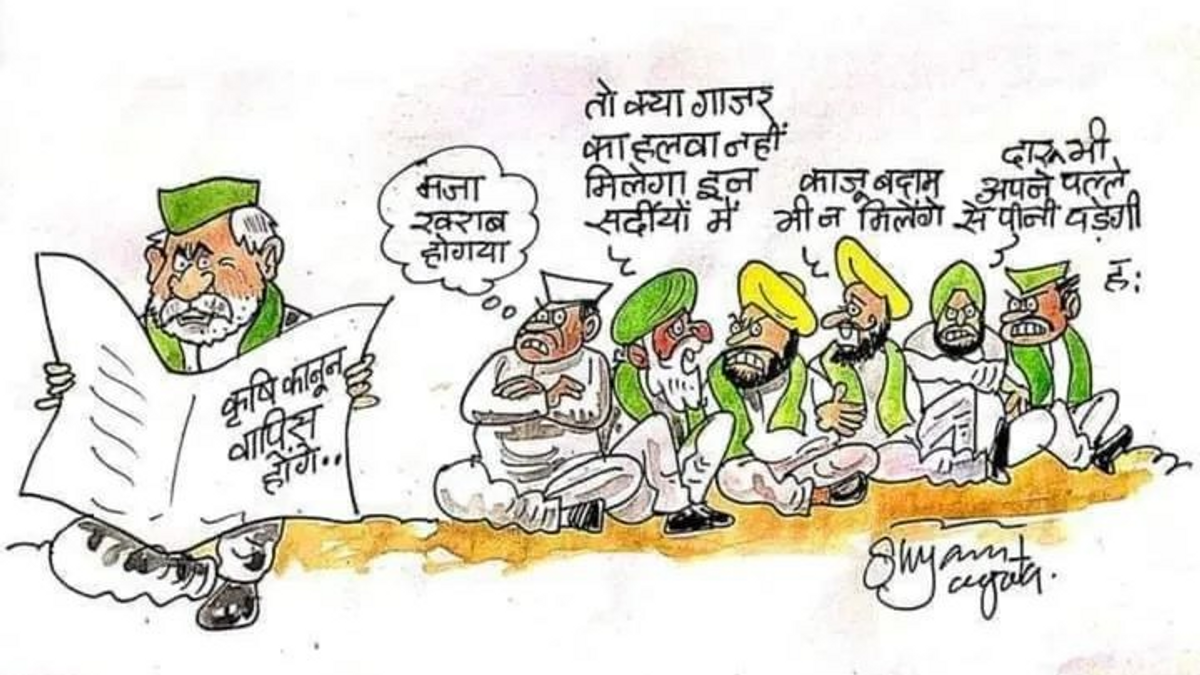 कृषि कानून
वापिस
होंगे..
मजा
खराब
होगया
तो क्या गाजर
का हलवा नहीं
मिलेगा इन
सर्दीयों में
काजू बदाम
भी न मिलेंगे
दारू भी
अपने पल्ले
से पीनी पड़ेगी
हः
Shyam